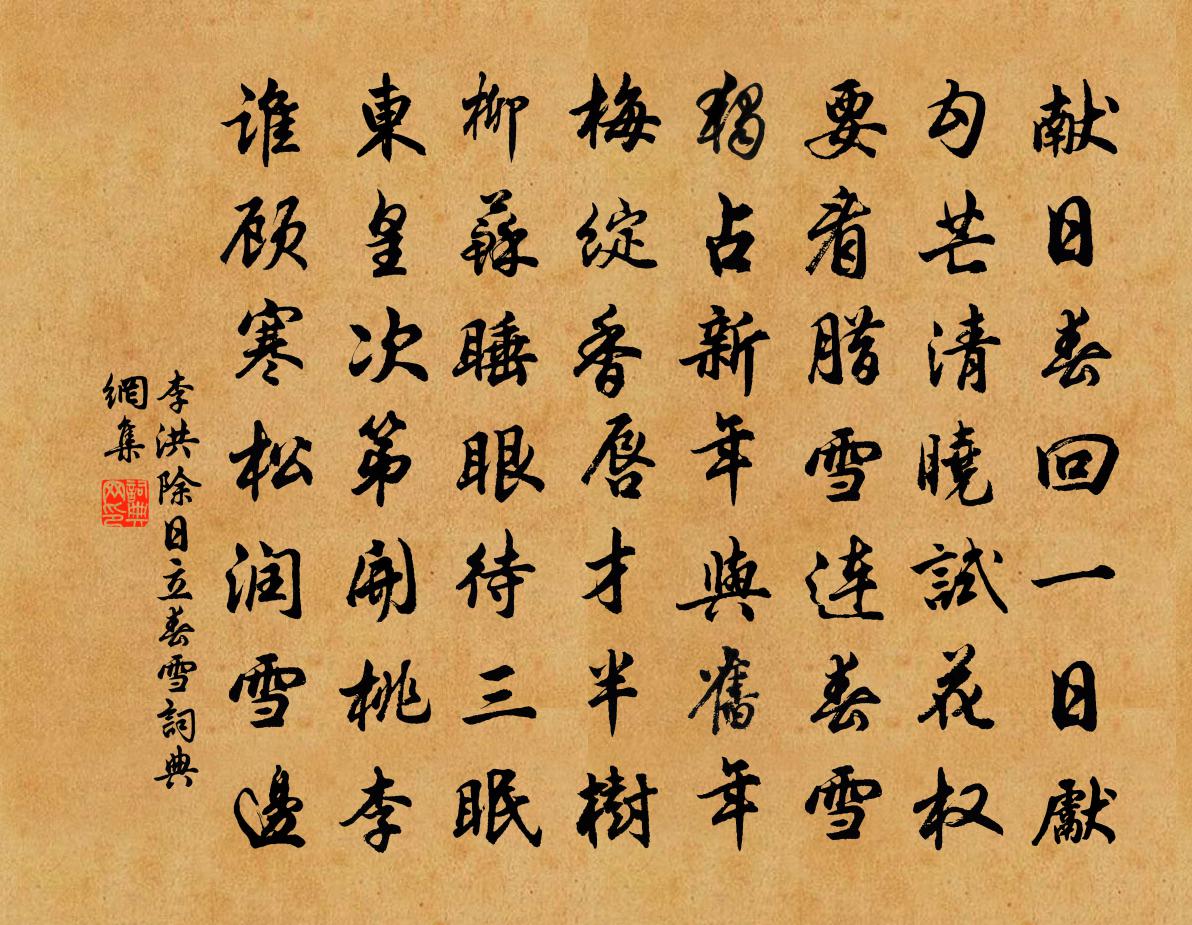 献日春回一日獻
勾芒清曉試花权
要看腊雪連春雪
獨占新年與舊年
梅綻香唇才半樹
柳蘇睡眼待三眠
東皇次第開桃李
谁顾寒松润雪邊
李洪除日立春雪詞典
網集
詞典
网印